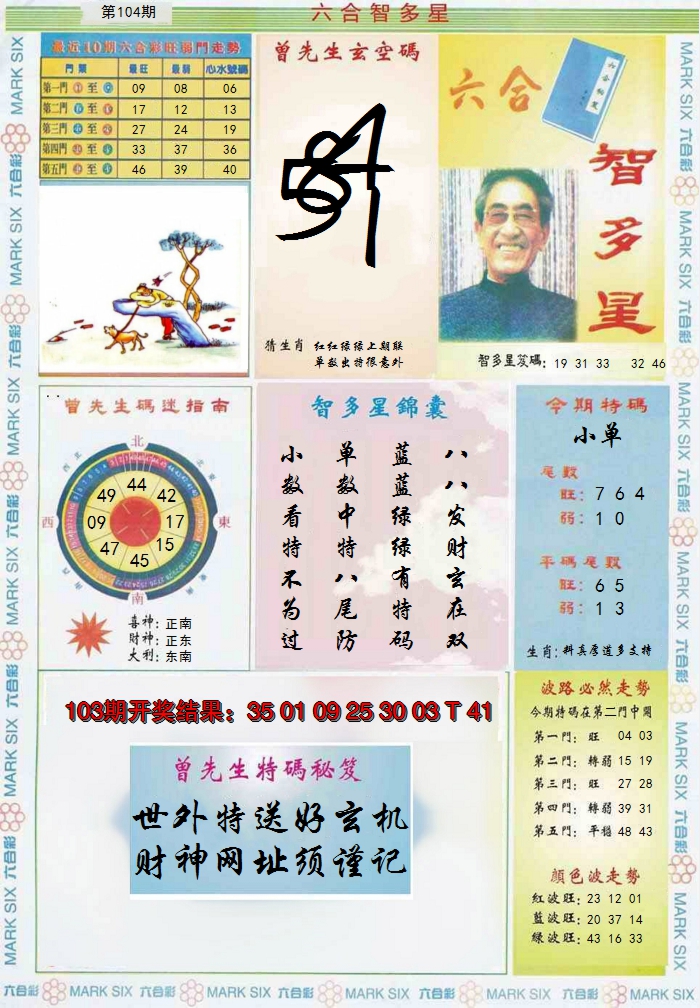 第104期
六合智多星
最近10期六合彩旺弱門走勢
門類 最旺 最弱 心水號碼
第一門 至 09 08 06
第二門 至 17 12 13
第三門 至 27 24 19
第四門 至 33 37 36
第五門 至 46 39 40
曾先生玄空碼
猜生肖 红红绿绿上期联
单数出特很意外
六合
智多星
智多星笈碼: 19 31 33 32 46
曾先生碼迷指南
北
西 東
南
44
49 42
09 17
47 15
45
喜神: 正南
財神: 正东
大利: 东南
智多星錦囊
八八发财玄在双
蓝蓝绿绿有特码
单数中特八尾防
小数看特不为过
今期特碼
小单
尾數
旺: 7 6 4
弱: 1 0
平碼尾數
旺: 6 5
弱: 1 3
生肖: 料真厚道多支持
103期开奖结果: 35 01 09 25 30 03 T 41
曾先生特碼秘笈
世外特送好玄机
财神网址须谨记
波路必然走勢
今期特碼在第二門中開
第一門: 旺 04 03
第二門: 轉弱 15 19
第三門: 旺 27 28
第四門: 轉弱 39 31
第五門: 平穩 48 43
顏色波走勢
紅波旺: 23 12 01
藍波旺: 20 37 14
綠波旺: 43 16 33
MARK SIX 六合彩